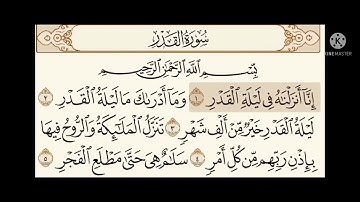 سُورَةُ الْقَدْرِ
بِسْمِ اللَّهِ الرَّحْمَٰنِ الرَّحِيمِ
إِنَّا أَنزَلْنَاهُ فِي لَيْلَةِ الْقَدْرِ ١ وَمَا أَدْرَاكَ مَا لَيْلَةُ الْقَدْرِ ٢
لَيْلَةُ الْقَدْرِ خَيْرٌ مِّنْ أَلْفِ شَهْرٍ ٣ تَنَزَّلُ الْمَلَائِكَةُ وَالرُّوحُ فِيهَا
بِإِذْنِ رَبِّهِم مِّن كُلِّ أَمْرٍ ٤ سَلَامٌ هِيَ حَتَّىٰ مَطْلَعِ الْفَجْرِ ٥
KINEMASTER